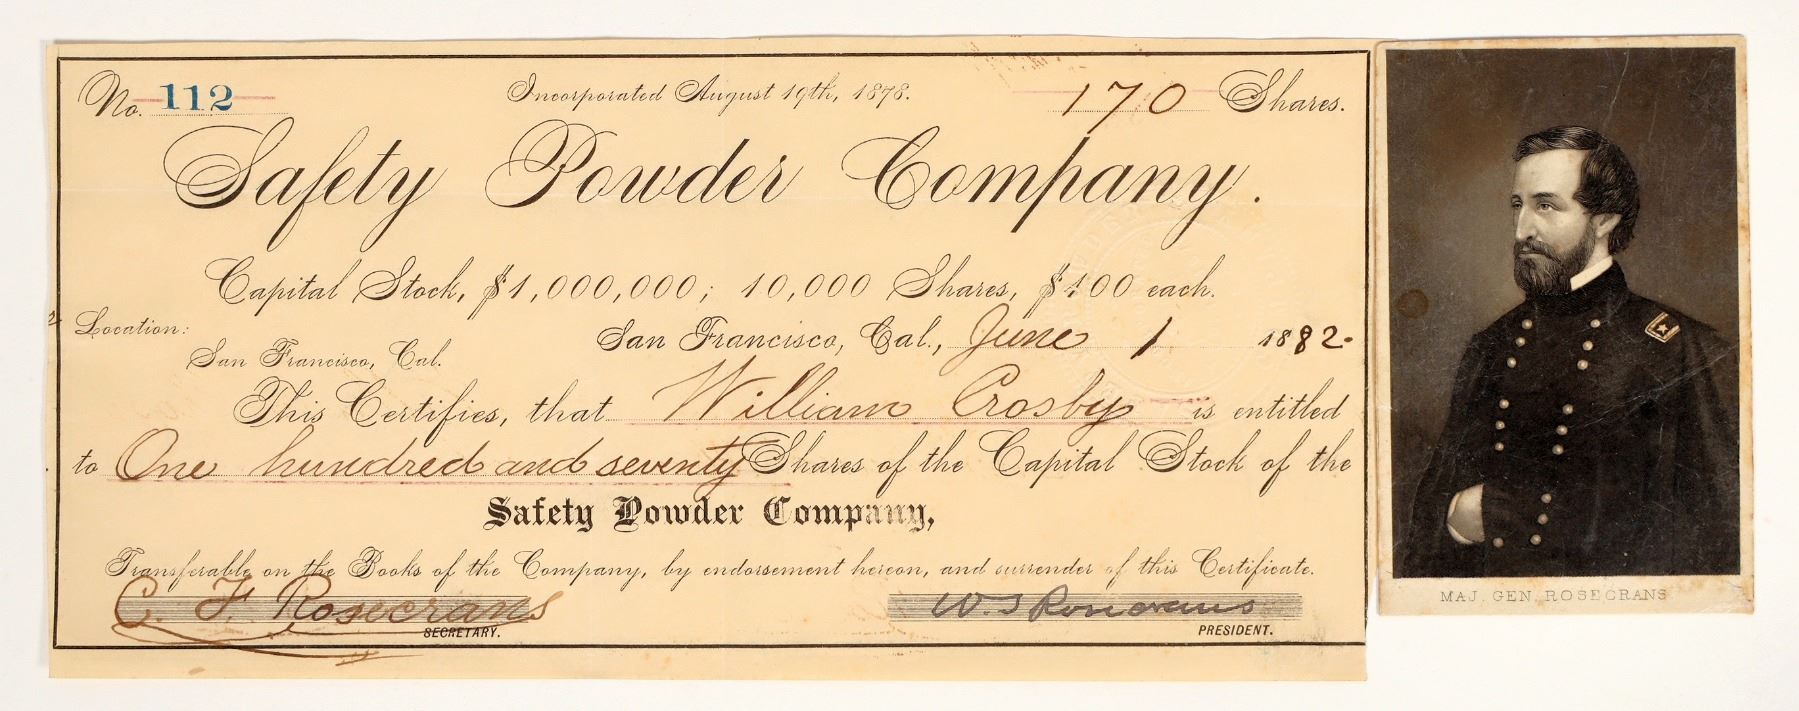 No. 112 Incorporated August 19th, 1878. 170 Shares.
Safety Powder Company.
Capital Stock, $1,000,000; 10,000 Shares, $100 each.
Location:
San Francisco, Cal.
San Francisco, Cal., June 1 1882.
This Certifies, that William Crosby is entitled
to One hundred and seventy Shares of the Capital Stock of the
Safety Powder Company,
Transferable on the Books of the Company, by endorsement hereon, and surrender of this Certificate.
C. F. Rosecrans
SECRETARY.
W. S Rosecrans
PRESIDENT.
MAJ. GEN. ROSECRANS